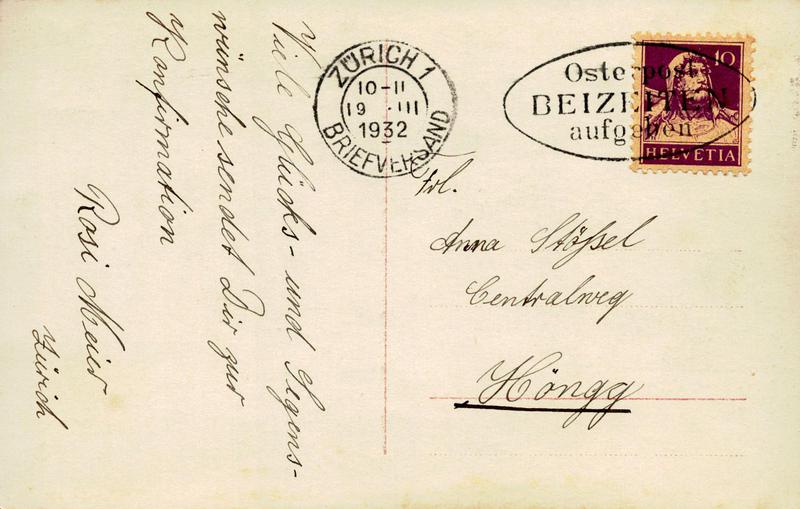 Viele Glücks- und Segens-
wünsche sendet Dir zur
Konfirmation
Rosi Meier
Zürich
ZÜRICH 1
10-11
19 III
1932
BRIEFVERSAND
Osterpost
BEIZEITEN
aufgeben
10
HELVETIA
Frl.
Anna Stößel
Centralweg
Höngg